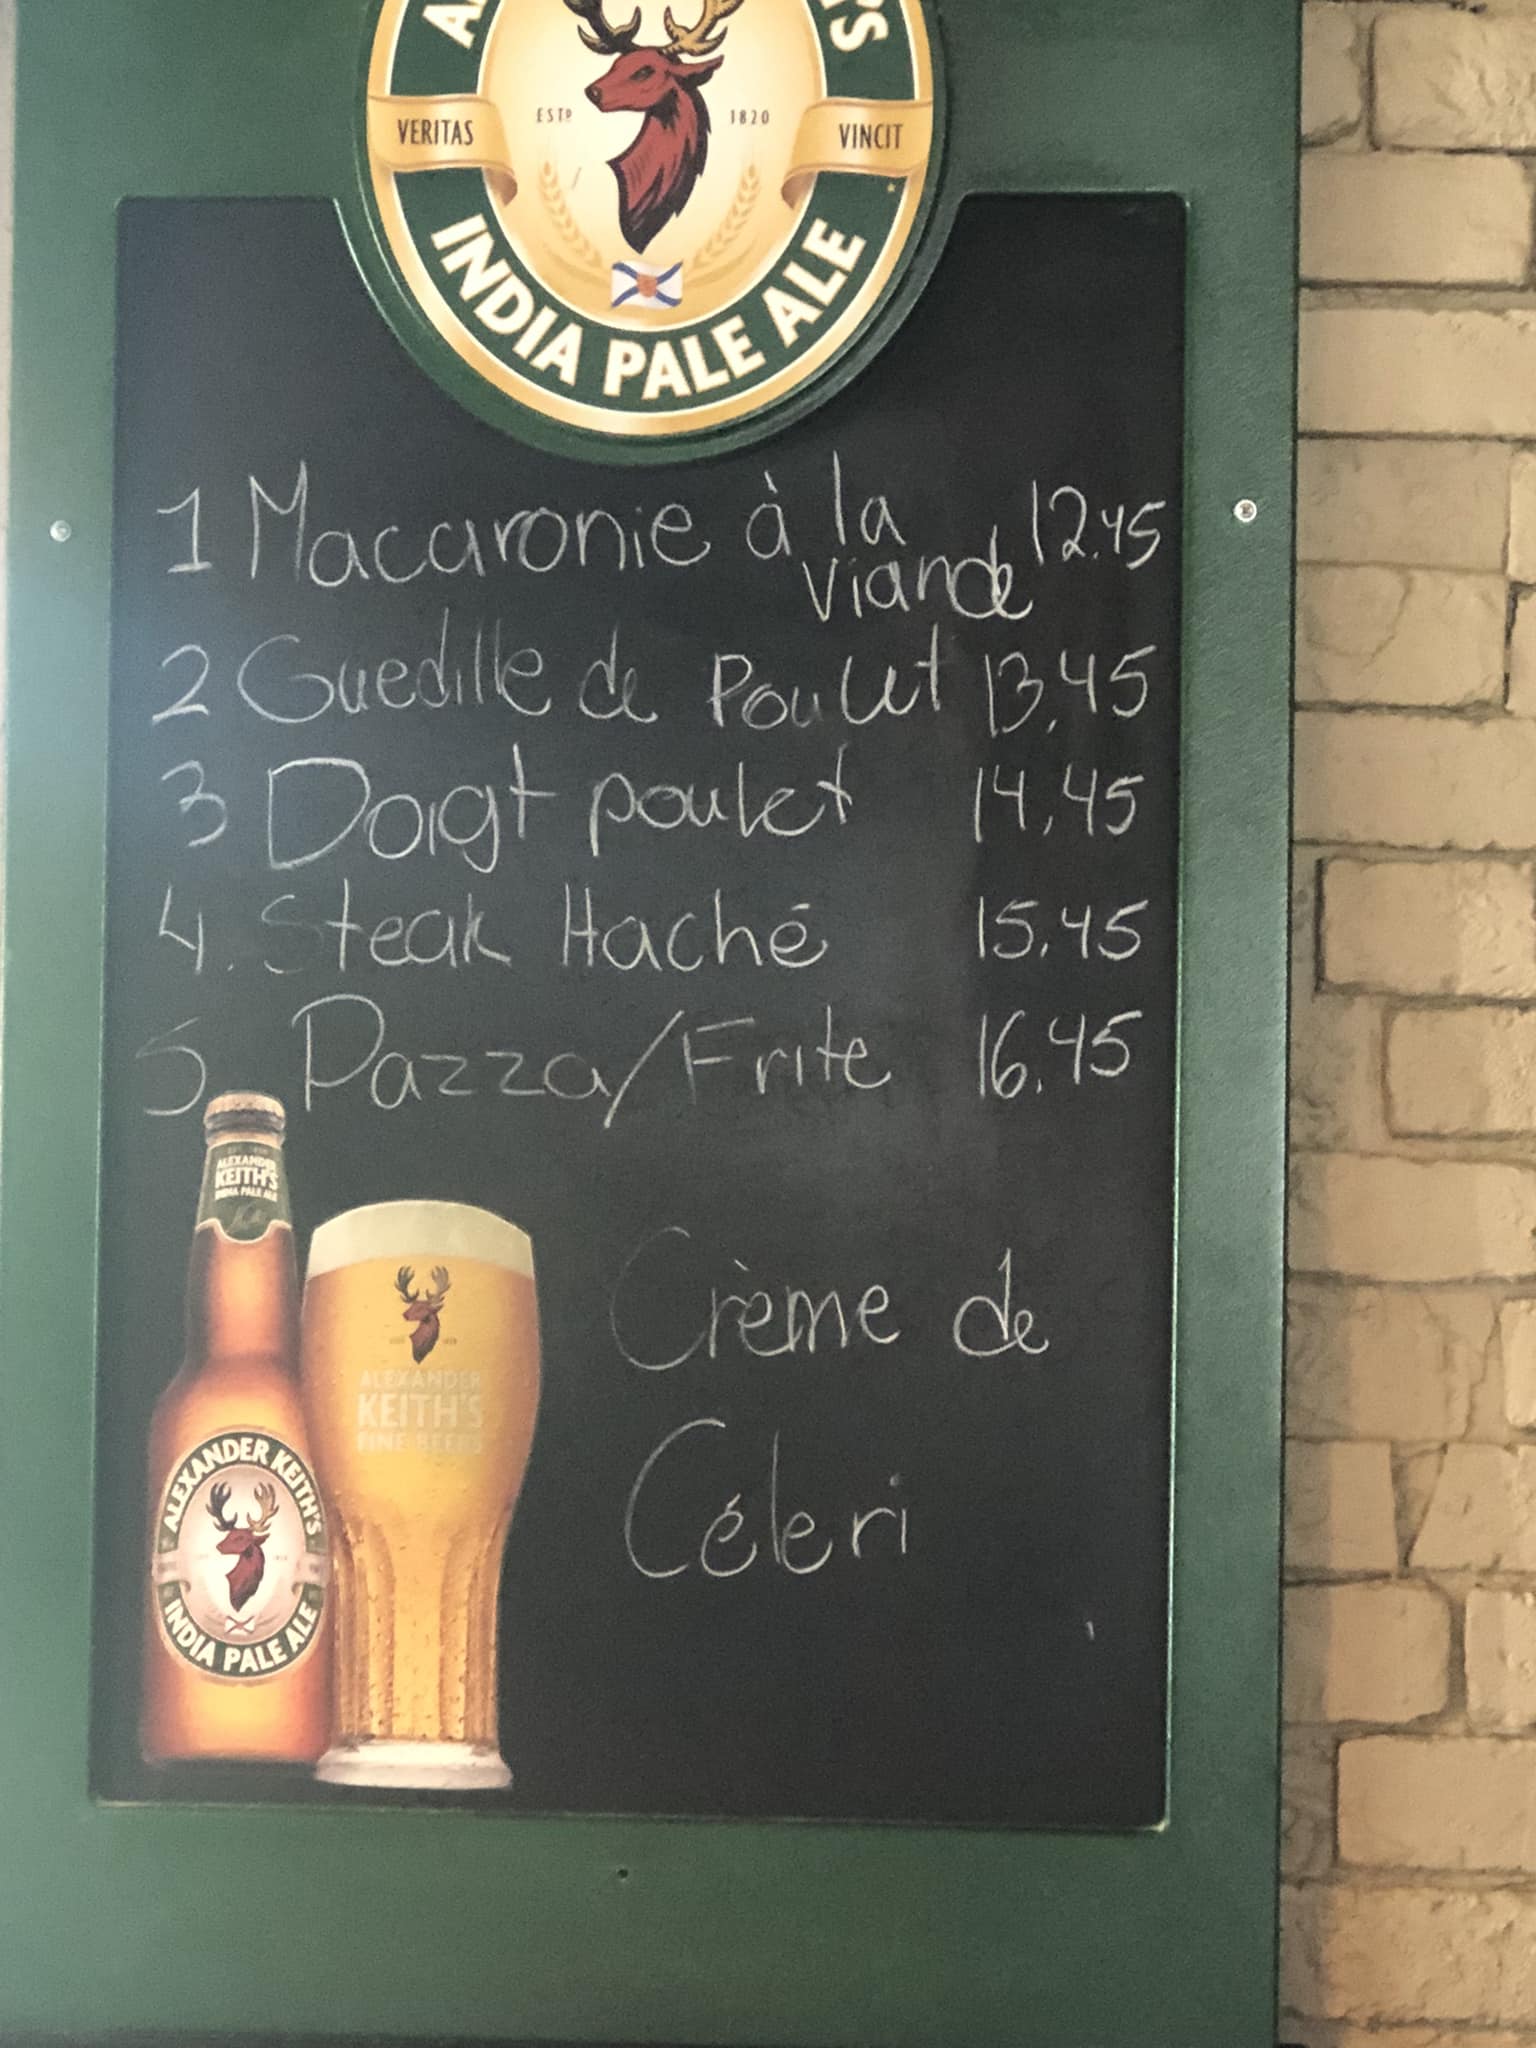 VERITAS
ESTD 1820
VINCIT
INDIA PALE ALE
1 Macaronie à la viande 12.45
2 Guedille de Poulet 13,45
3 Doigt poulet 14,45
4. Steak Haché 15,45
5. Pazza/Frite 16,45
Crème de
Céleri
ALEXANDER
KEITH'S
INDIA PALE ALE
ALEXANDER
KEITH'S
FINE BEERS
ALEXANDER KEITH'S
INDIA PALE ALE